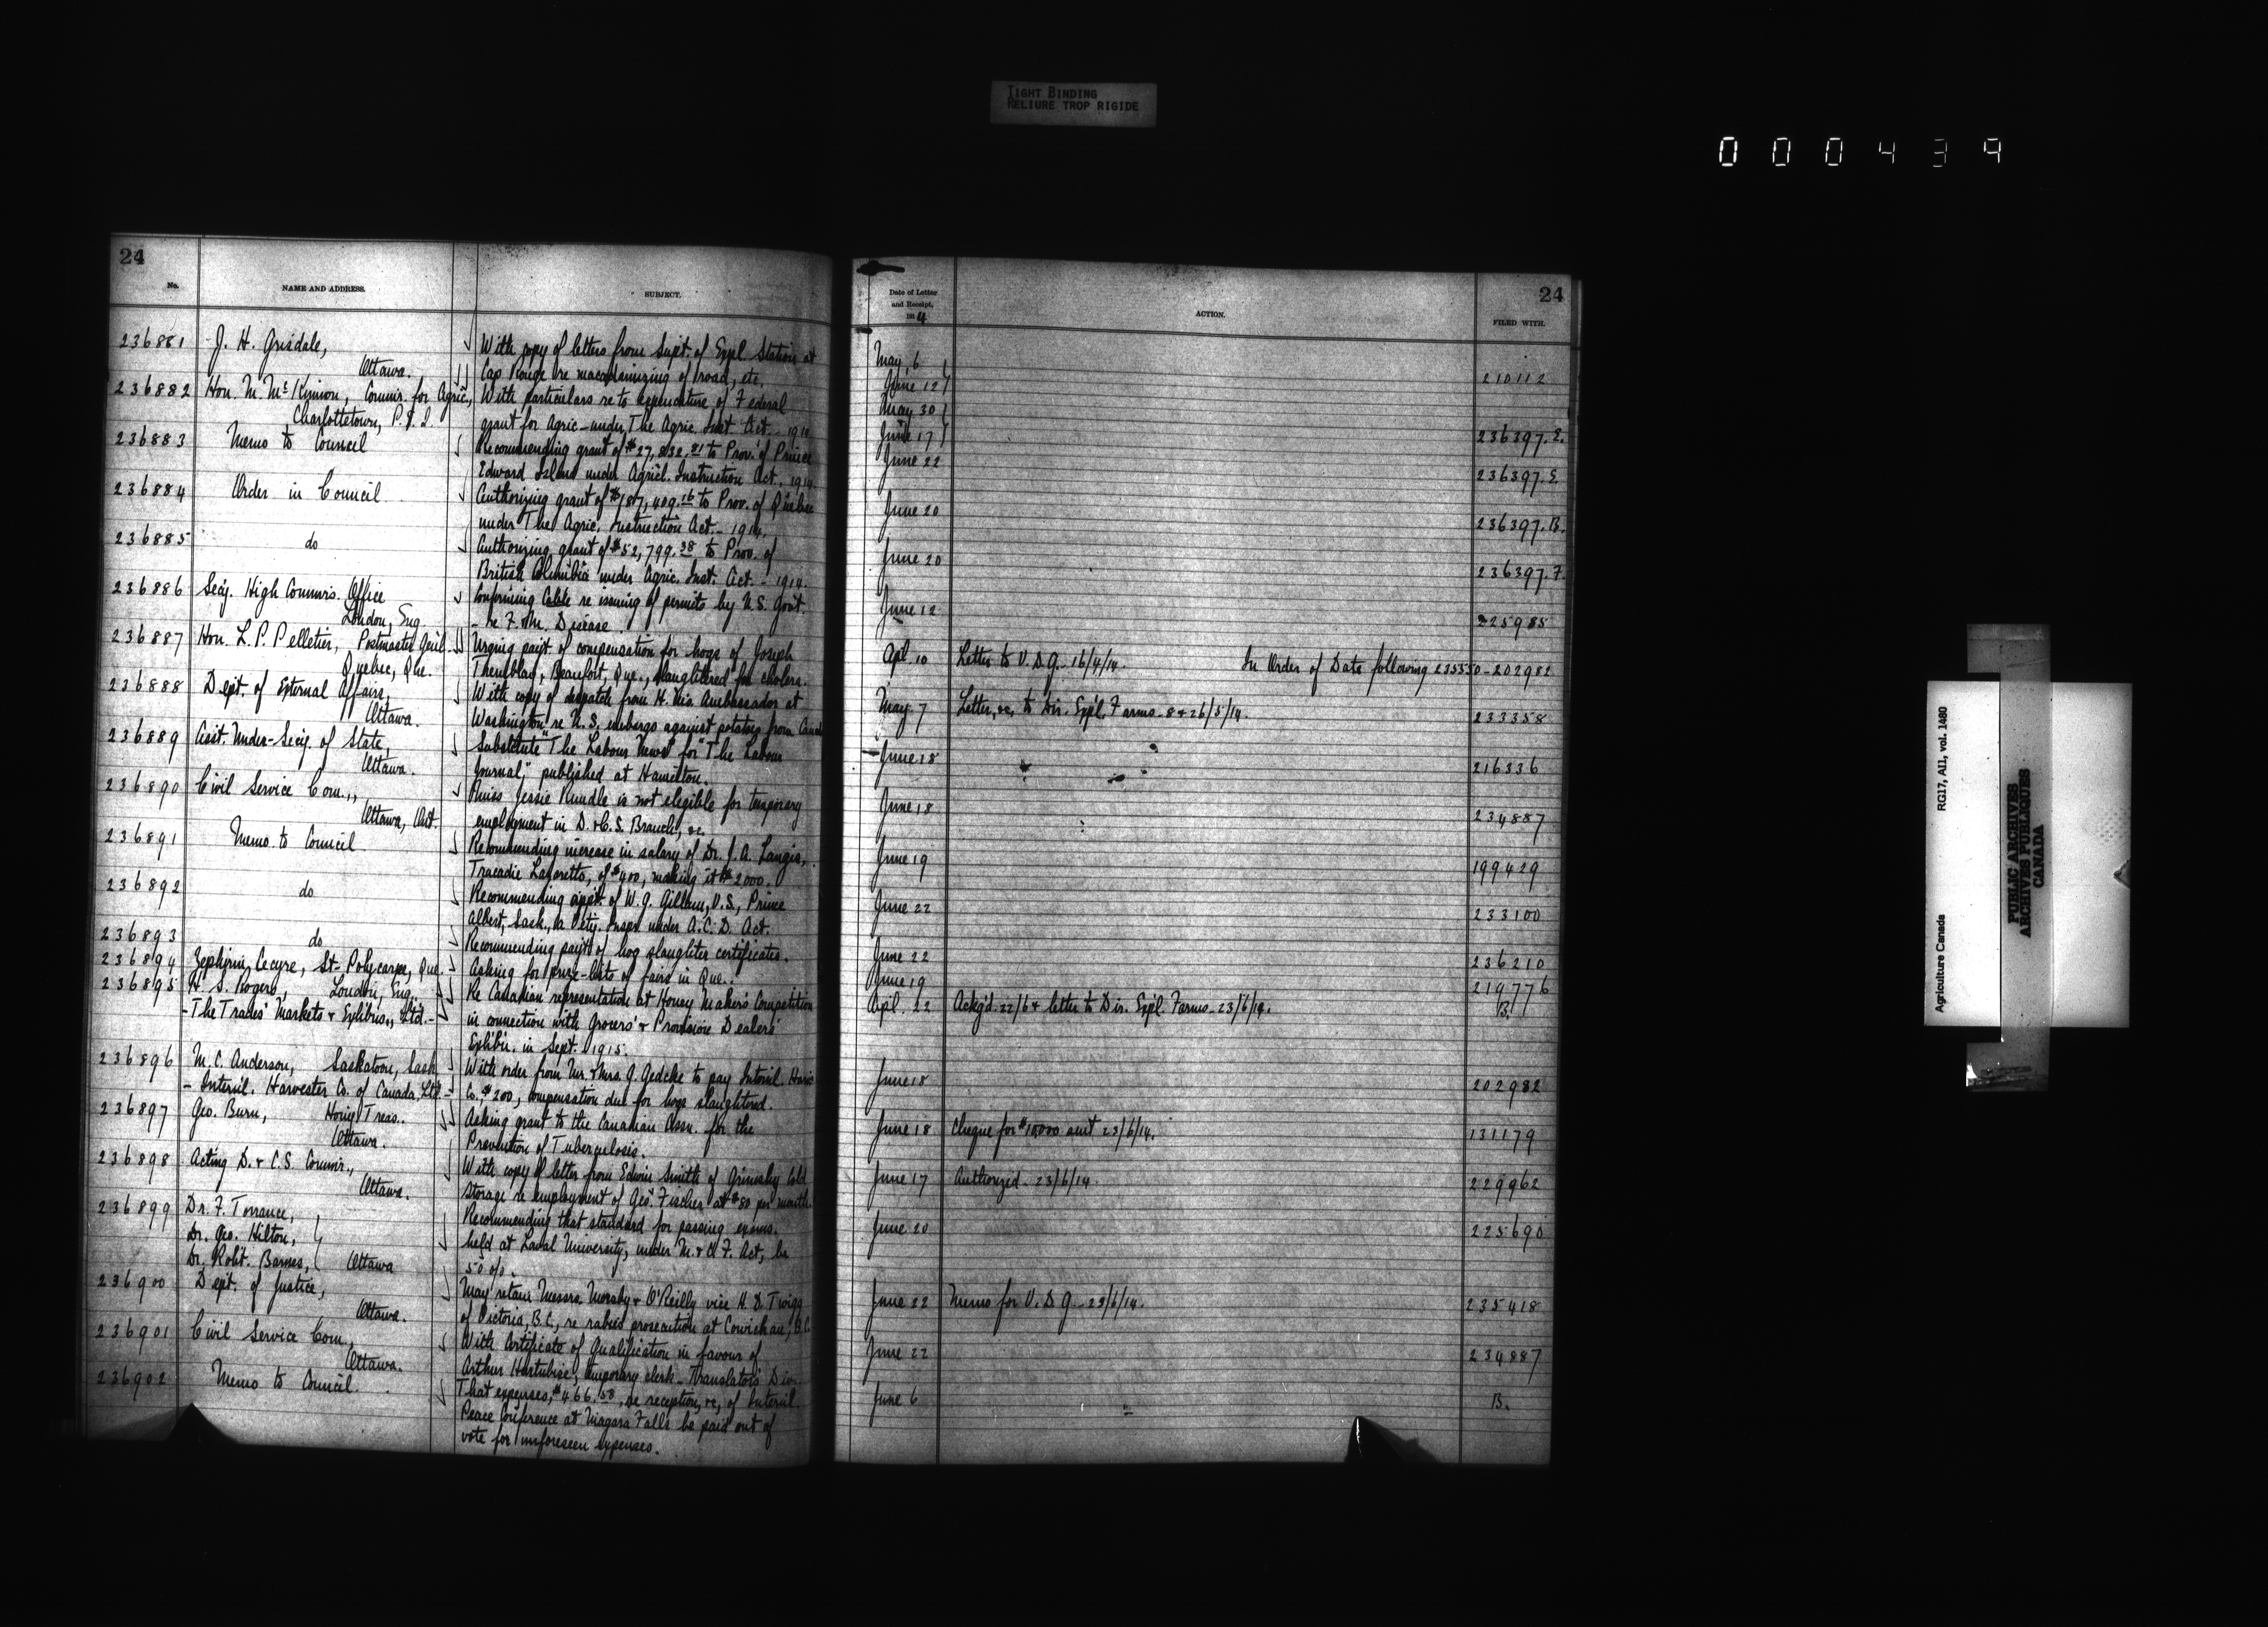 TIGHT BINDING
RELIURE TROP RIGIDE
000439
24
No.
NAME AND ADDRESS.
SUBJECT.
236881 J. H. Grisdale, With copy of letters from Supt. of Expl. Station at
Ottawa. Cap Rouge re macadamizing of road, etc.
236882 Hon. M. McKinnon, Commr. for Agric., With particulars re to expenditure of Federal
Charlottetown, P.E.I. grant for Agric. under The Agric. Inst. Act. - 1914
236883 Memo to Council Recommending grant of $27,832.81 to Prov. of Prince
Edward Island under Agricl. Instruction Act. 1914.
236884 Order in Council Authorizing grant of $187,409.16 to Prov. of Quebec
under The Agric. Instruction Act. - 1914.
236885 do Authorizing grant of $52,799.38 to Prov. of
British Columbia under Agric. Inst. Act. - 1914.
236886 Secy. High Commrs. Office Confirming Cable re issuing of permits by U.S. Govt.
London, Eng. - re F. & M. Disease.
236887 Hon. L. P. Pelletier, Postmaster Genl. - Urging payt. of compensation for hogs of Joseph
Quebec, Que. Beaufort, Que., slaughtered for cholera.
236888 Dept. of External Affairs, With copy of despatch from H. M's Ambassador at
Ottawa. Washington re U.S. embargo against potatoes from Canada
236889 Asst. Under-Secy. of State, Substitute "The Labour News" for "The Labour
Ottawa. Journal," published at Hamilton.
236890 Civil Service Com., Miss Jessie Rundle is not elegible for temporary
Ottawa, Ont. employment in D. & C.S. Branch, &c.
236891 Memo to Council Recommending increase in salary of Dr. J. A. Langis,
Tracadie Lazaretto, of $400, making it $2000.
236892 do Recommending appt. of W. G. Gillam, V.S., Prince
Albert, Sask., as Vety. Inspr. under A.C.D. Act.
236893 do Recommending payt. of hog slaughter certificates.
236894 Zephirin Cecyre, St-Polycarpe, Que. Asking for prize-lists of fairs in Que.
236895 H. S. Rogers, London, Eng. Re Canadian representation at Honey Makers Competition
- The Trades' Markets & Exhibns., Ltd. - in connection with Grocers' & Provision Dealers'
Exhibn. in Sept. 1915.
236896 M. C. Anderson, Saskatoon, Sask. With order from Mr. & Mrs. G. Gedcke to pay Internl. Harv.
- Internl. Harvester Co. of Canada, Ltd. - Co. $200, compensation due for hogs slaughtered.
236897 Geo. Burn, Hony. Treas. Asking grant to the Canadian Assn. for the
Ottawa. Prevention of Tuberculosis.
236898 Acting D. & C.S. Commr., With copy of letter from Edwin Smith of Grimsby Cold
Ottawa. Storage re employment of Geo. Fischer at $80 per month.
236899 Dr. F. Torrance, Recommending that standard for passing exams.
Dr. Geo. Hilton, held at Laval University, under M. & C. F. Act, be
Dr. Robt. Barnes, Ottawa 50 o/o.
236900 Dept. of Justice, May retain Messrs. Moresby & O'Reilly vice H. D. Twigg
Ottawa. of Victoria, B.C., re rabies prosecution at Cowichan, B.C.
236901 Civil Service Com., With Certificate of Qualification in favour of
Ottawa. Arthur Hurtubise, temporary clerk - Translator's Div.
236902 Memo to Council. That expenses, $466.58, re reception, &c., of Internl.
Peace Conference at Niagara Falls be paid out of
vote for unforeseen expenses.
24
Date of Letter
and Receipt,
1914
ACTION.
FILED WITH.
May 6
June 12 210112
May 30
June 17 236397. E.
June 22 236397. E.
June 20 236397. B.
June 20 236397. F.
June 12 225985
Apl. 10 Letter to V.D.G. 16/4/14. In Order of Date following 235350 - 202982
May 7 Letter, &c, to Dir. Expl. Farms - 8 & 26/5/14. 233358
June 18 216336
June 18 234887
June 19 199429
June 22 233100
June 22 236210
June 19 219776
Apl. 22 Ackg'd. 22/6 & letter to Dir. Expl. Farms - 23/6/14. B.
June 18 202982
June 18 Cheque for $10,000 sent 23/6/14. 131179
June 17 Authorized - 23/6/14. 229962
June 20 225690
June 22 Memo for V.D.G. - 23/6/14. 235418
June 22 234887
June 6 B.
Agriculture Canada RG17, AII, vol. 1480
PUBLIC ARCHIVES
ARCHIVES PUBLIQUES
CANADA